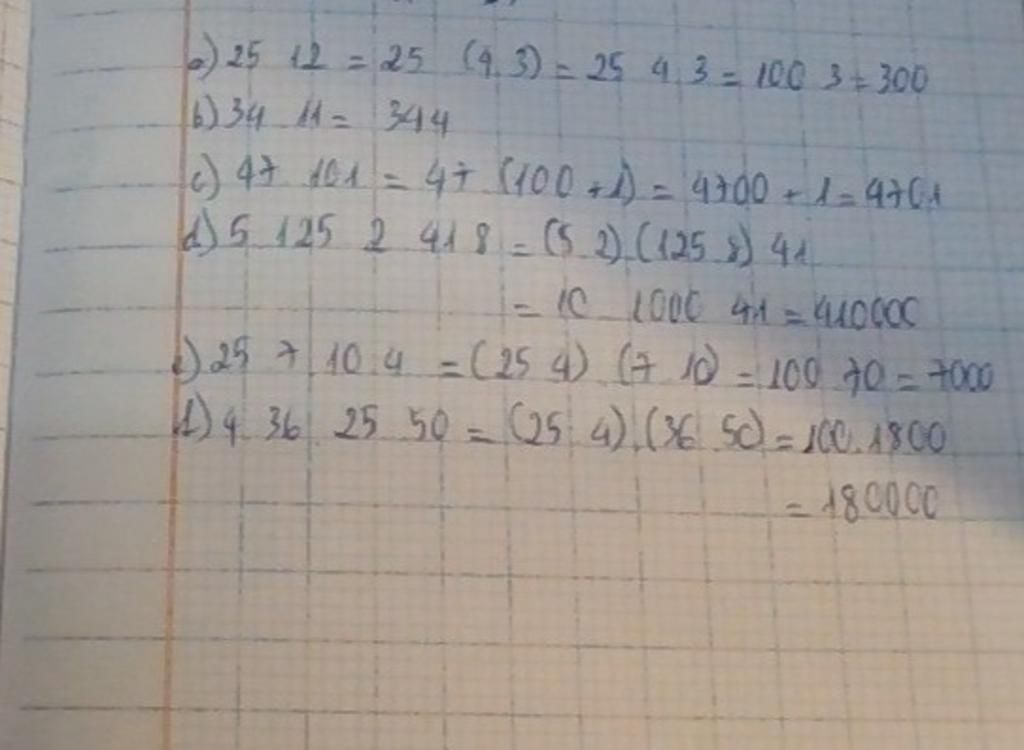 a) 25 12 = 25 (4.3) = 25 4 3 = 100 3 = 300
b) 34 11 = 344
c) 47 101 = 47 (100 + 1) = 4700 + 1 = 4701
d) 5 125 2 41 8 = (5 2).(125 8) 41
= 10 1000 41 = 410000
e) 25 7 10 4 = (25 4) (7 10) = 100 70 = 7000
f) 4 36 25 50 = (25 4).(36 50) = 100.1800
= 180000